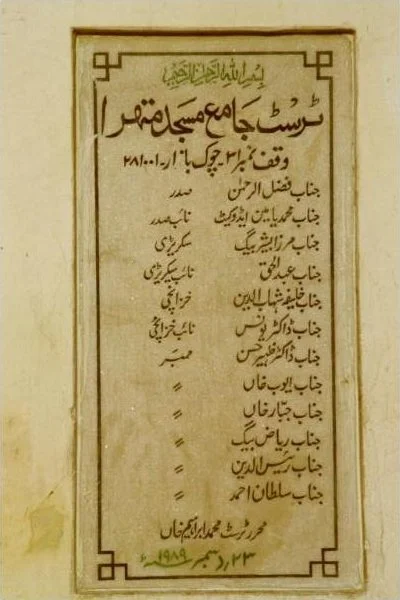 بسم اللہ الرحمن الرحیم
ٹرسٹ جامع مسجد متھرا
وقف نمبر ۳۱۔ چوک بازار۔ ۲۸۱۰۰۱
جناب فضل الرحمٰن صدر
جناب محمد یامین ایڈوکیٹ نائب صدر
جناب مرزا بشیر بیگ سکریٹری
جناب عبدالحق نائب سیکریٹری
جناب خلیفہ شہاب الدین خزانچی
جناب ڈاکٹر یونس نائب خزانچی
جناب ڈاکٹر ظہیر حسن ممبر
جناب ایوب خاں 〃
جناب جبّار خاں 〃
جناب ریاض بیگ 〃
جناب رئیس الدین 〃
جناب سلطان احمد 〃
محرر ٹرسٹ محمد ابراہیم خاں
۲۳؍ دسمبر ۱۹۸۹ء